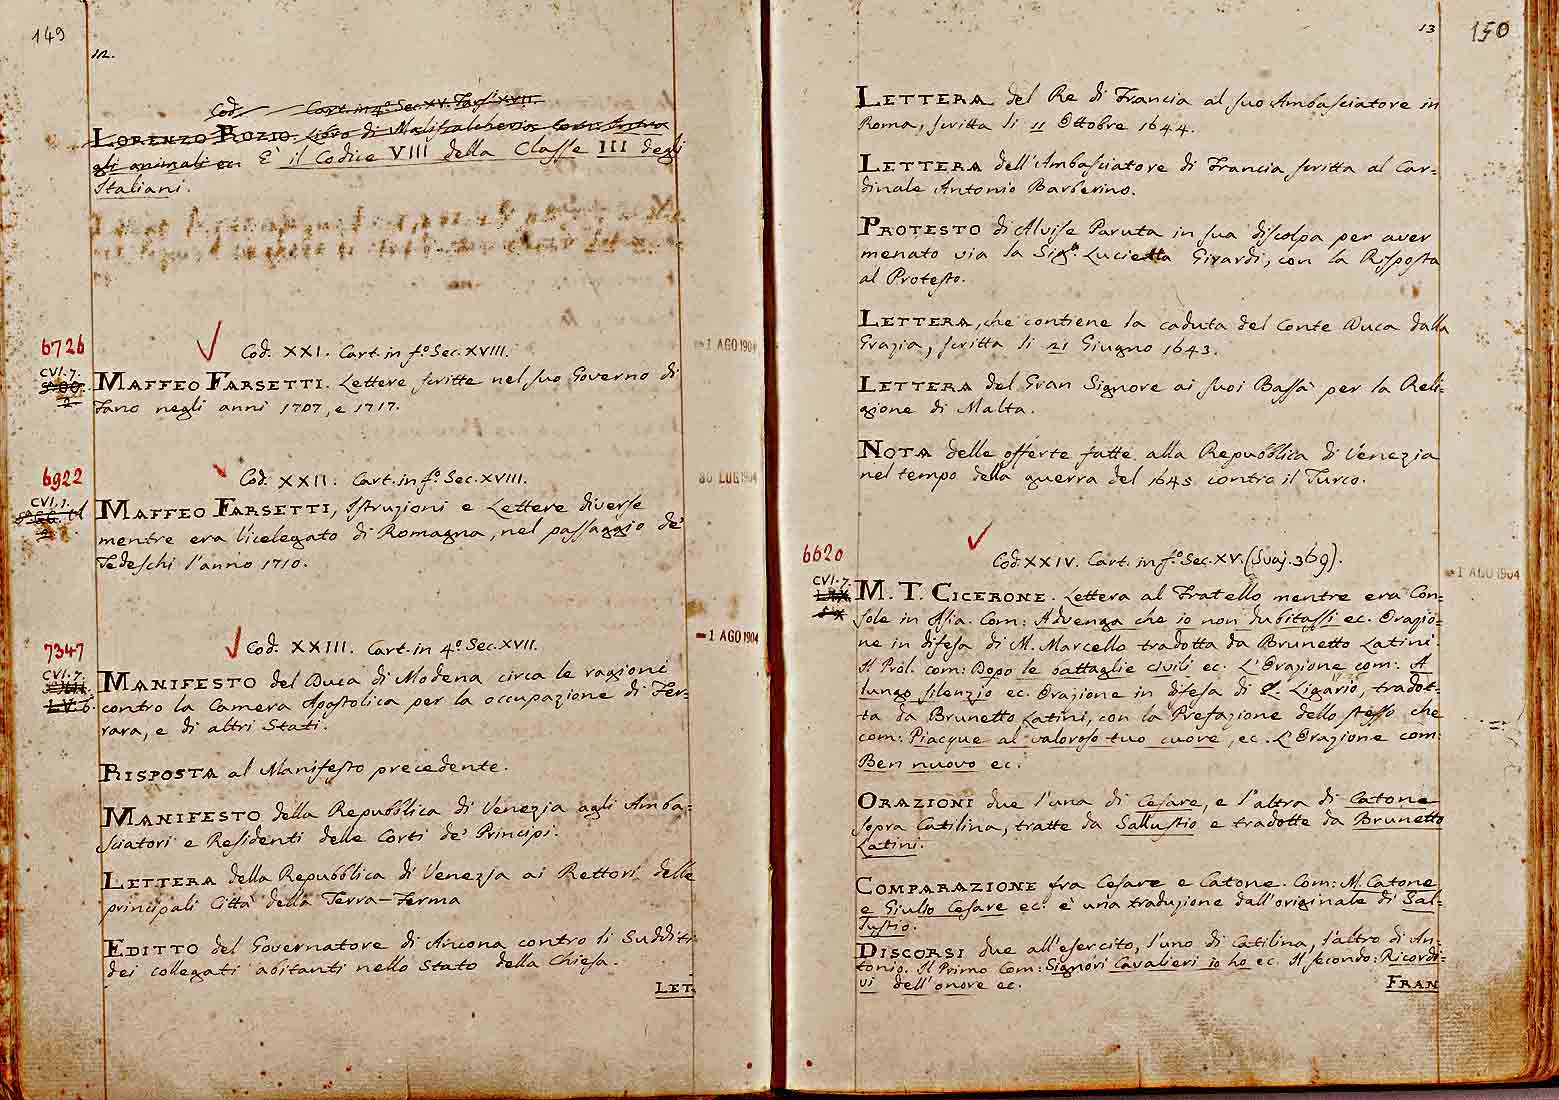 149
12.
Cod. Cart. in 4º. Sec. XV.
LORENZO ROZIO. Libro di
gli animali ec. E' il Codice VIII della Classe III degli
Italiani.
6726
Cod. XXI. Cart. in fº. Sec. XVIII.
1 AGO 1904
CVI. 7.
MAFFEO FARSETTI. Lettere scritte nel suo Governo di
Fano negli anni 1707, e 1717.
6922
Cod. XXII. Cart. in fº. Sec. XVIII.
30 LUG 1904
CVI. 7.
MAFFEO FARSETTI, Istruzioni e Lettere diverse
mentre era Vicelegato di Romagna, nel passaggio de'
Tedeschi l'anno 1710.
7347
Cod. XXIII. Cart. in 4º. Sec. XVII.
1 AGO 1904
CVI. 7.
MANIFESTO del Duca di Modena circa le ragioni
contro la Camera Apostolica per la occupazione di Fer=
rara, e di altri Stati.
RISPOSTA al Manifesto precedente.
MANIFESTO della Repubblica di Venezia agli Amba=
sciatori e Residenti delle Corti de' Principi.
LETTERA della Repubblica di Venezia ai Rettori delle
principali Città della Terra-Ferma
EDITTO del Governatore di Ancona contro li Sudditi
dei collegati abitanti nello Stato della Chiesa.
LET.
13
150
LETTERA del Re di Francia al suo Ambasciatore in
Roma, scritta li 11 Ottobre 1644.
LETTERA dell'Ambasciatore di Francia scritta al Car=
dinale Antonio Barberino.
PROTESTO di Alvise Paruta in sua discolpa per aver
menato via la Sigª. Lucietta Girardi, con la Risposta
al Protesto.
LETTERA, che contiene la caduta del Conte Duca dalla
Grazia, scritta li 21 Giugno 1643.
LETTERA del Gran Signore ai suoi Bassà per la Reli=
gione di Malta.
NOTA delle offerte fatte alla Repubblica di Venezia
nel tempo della guerra del 1645 contro il Turco.
6620
Cod. XXIV. Cart. in fº. Sec. XV. (Svaj. 369).
1 AGO 1904
CVI. 7.
M. T. CICERONE. Lettera al Fratello mentre era Con=
sole in Asia. Com: Advenga che io non dubitassi ec. Orazio=
ne in difesa di M. Marcello tradotta da Brunetto Latini.
Il Prol. com: Dopo le battaglie civili ec. L'Orazione com: A
lungo silenzio ec. Orazione in difesa di Q. Ligario, tradot=
ta da Brunetto Latini, con la Prefazione dello stesso che
com: Piacque al valoroso tuo cuore, ec. L'Orazione com:
Ben nuovo ec.
ORAZIONI due l'una di Cesare, e l'altra di Catone
sopra Catilina, tratte da Sallustio e tradotte da Brunetto
Latini.
COMPARAZIONE fra Cesare e Catone. Com: M. Catone
e Giulio Cesare ec. è una traduzione dall'originale di Sal=
lustio.
DISCORSI due all'esercito, l'uno di Catilina, l'altro di An=
tonio. Il Primo Com: Signori Cavalieri io ho ec. Il secondo: Ricordi=
vi dell'onore ec.
FRAN